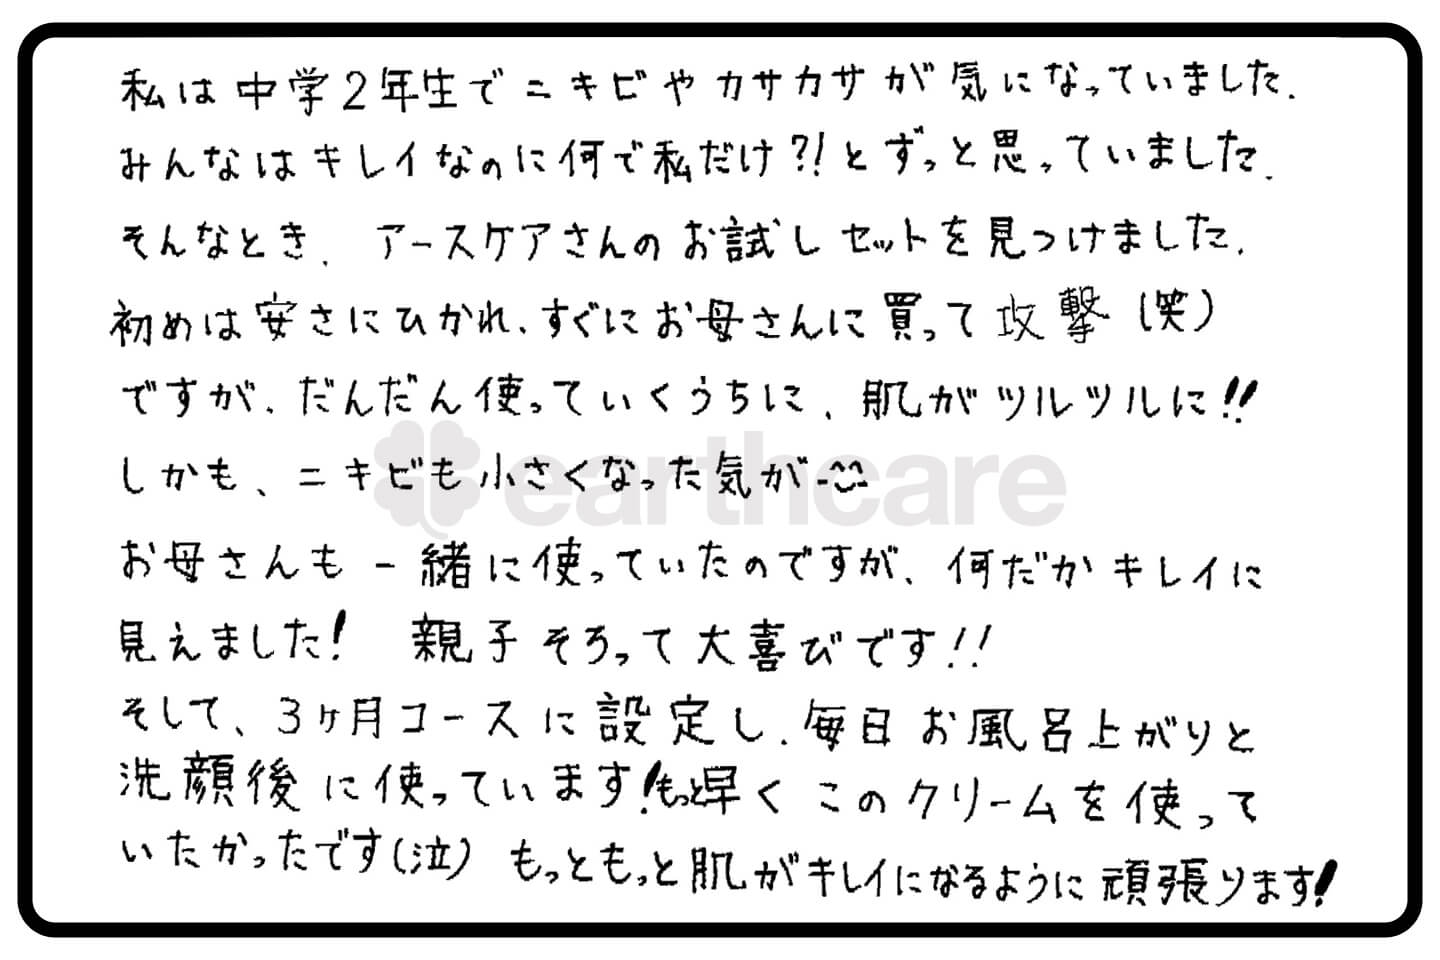 私は中学2年生でニキビやカサカサが気になっていました.
みんなはキレイなのに何で私だけ?!とずっと思っていました.
そんなとき、アースケアさんのお試しセットを見つけました.
初めは安さにひかれ、すぐにお母さんに買って攻撃(笑)
ですが、だんだん使っていくうちに、肌がツルツルに!!
しかも、ニキビも小さくなった気が^^
earthcare
お母さんも一緒に使っていたのですが、何だかキレイに
見えました! 親子そろって大喜びです!!
そして、3ヶ月コースに設定し、毎日お風呂上がりと
洗顔後に使っています!もっと早くこのクリームを使って
いたかったです(泣) もっともっと肌がキレイになるように頑張ります!